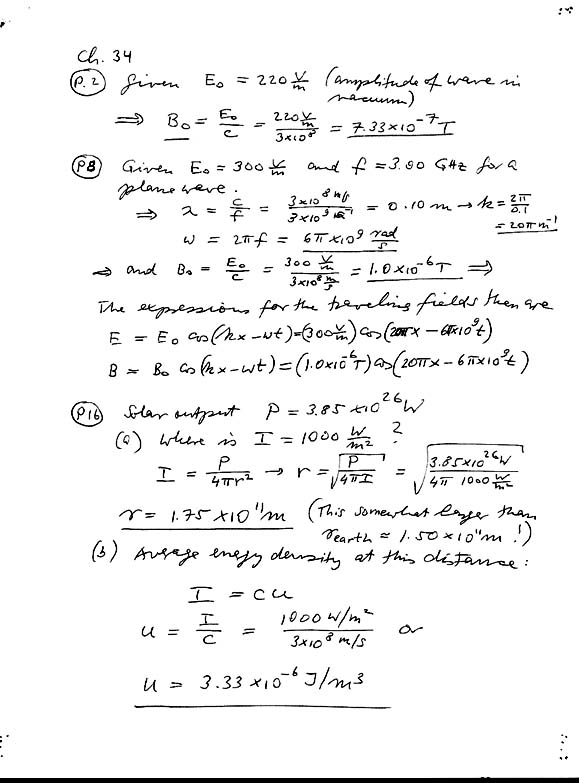 Ch. 34
P.2 Given E₀ = 220 V/m (amplitude of wave in
vacuum)
⇒ B₀ = E₀/c = 220 V/m / 3×10⁸ = 7.33×10⁻⁷ T
P8 Given E₀ = 300 V/m and f = 3.00 GHz for a
plane wave.
⇒ λ = c/f = 3×10⁸ m/s / 3×10⁹ s⁻¹ = 0.10 m → k = 2π/0.1
= 20π m⁻¹
ω = 2πf = 6π×10⁹ rad/s
⇒ and B₀ = E₀/c = 300 V/m / 3×10⁸ m/s = 1.0×10⁻⁶ T ⇒
The expressions for the traveling fields then are
E = E₀ cos(kx − ωt) = (300 V/m) cos(20πx − 6π×10⁹t)
B = B₀ cos(kx − ωt) = (1.0×10⁻⁶ T) cos(20πx − 6π×10⁹t)
P16 Solar output P = 3.85 ×10²⁶ W
(a) Where is I = 1000 W/m² ?
I = P/4πr² → r = √(P/4πI) = √(3.85×10²⁶ W / 4π 1000 W/m²)
r = 1.75 ×10¹¹ m (This somewhat larger than
r earth ≈ 1.50×10¹¹ m !)
(b) Average energy density at this distance:
I = cu
u = I/c = 1000 W/m² / 3×10⁸ m/s or
u = 3.33 ×10⁻⁶ J/m³